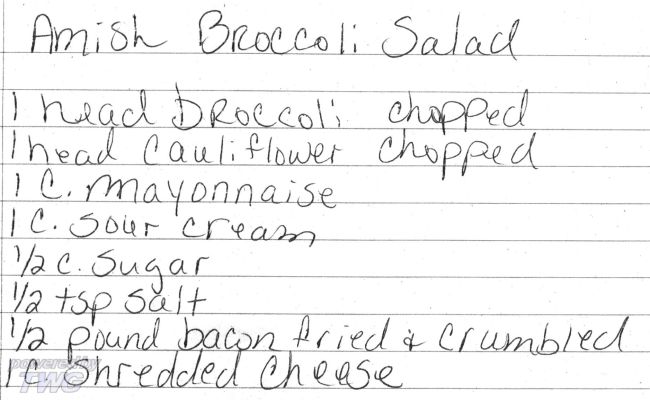 Amish Broccoli Salad
1 head Broccoli chopped
1 head Cauliflower chopped
1 C. mayonnaise
1 C. Sour cream
1/2 C. Sugar
1/2 tsp salt
1/2 pound bacon fried & crumbled
1 C Shredded Cheese
powered by
TWG